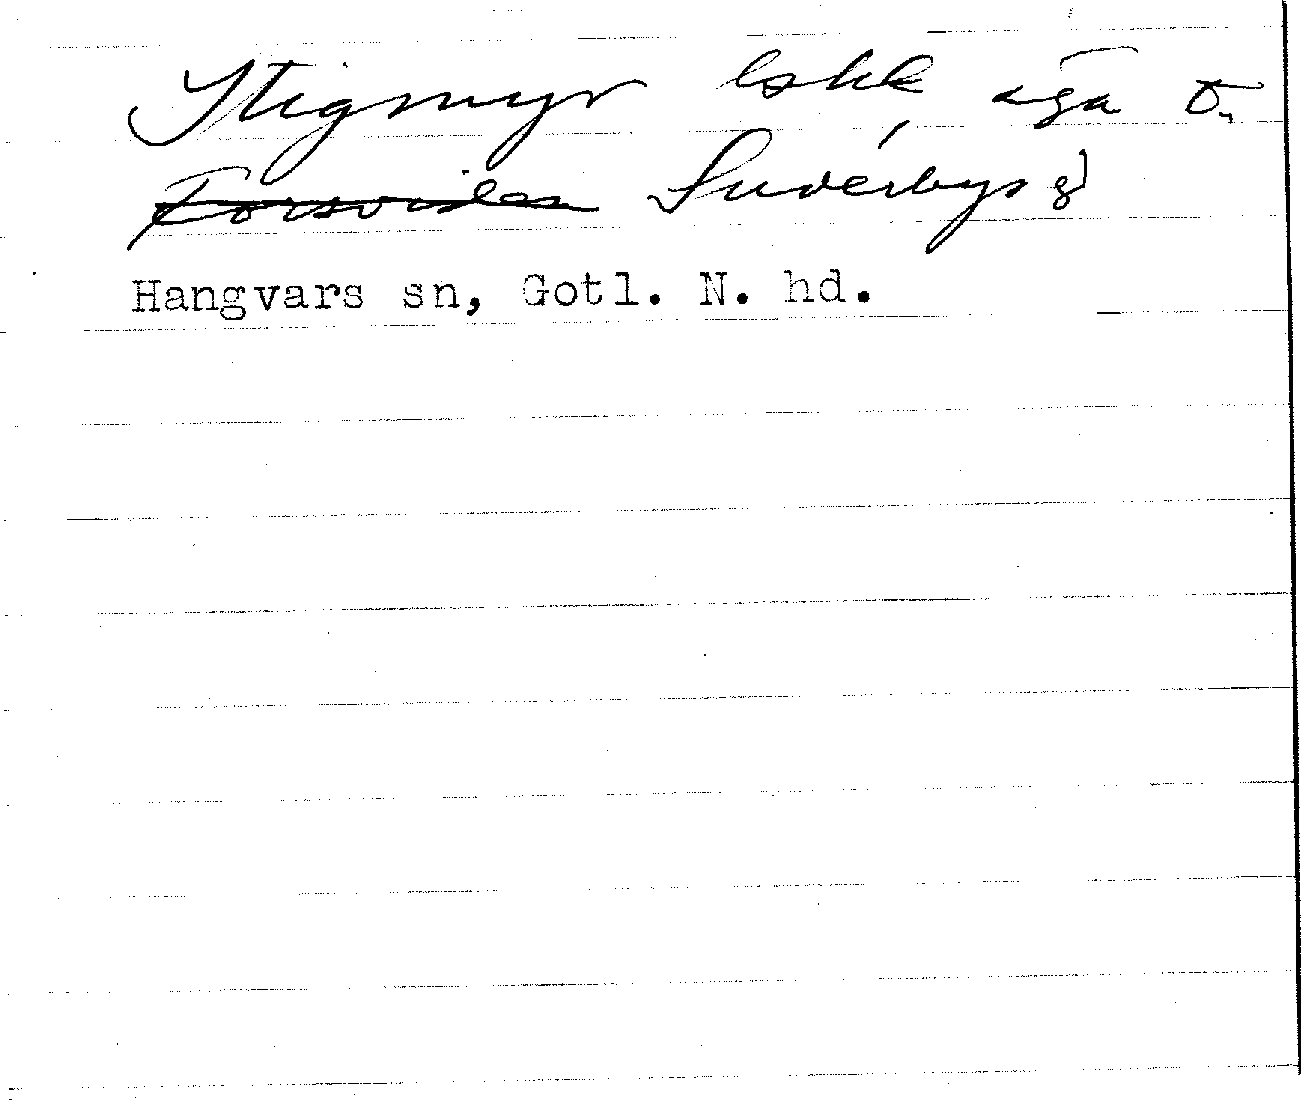 Stigmyr lokk, äga t.
Forsvidan Suderbys gd
Hangvars sn, Gotl. N. hd.